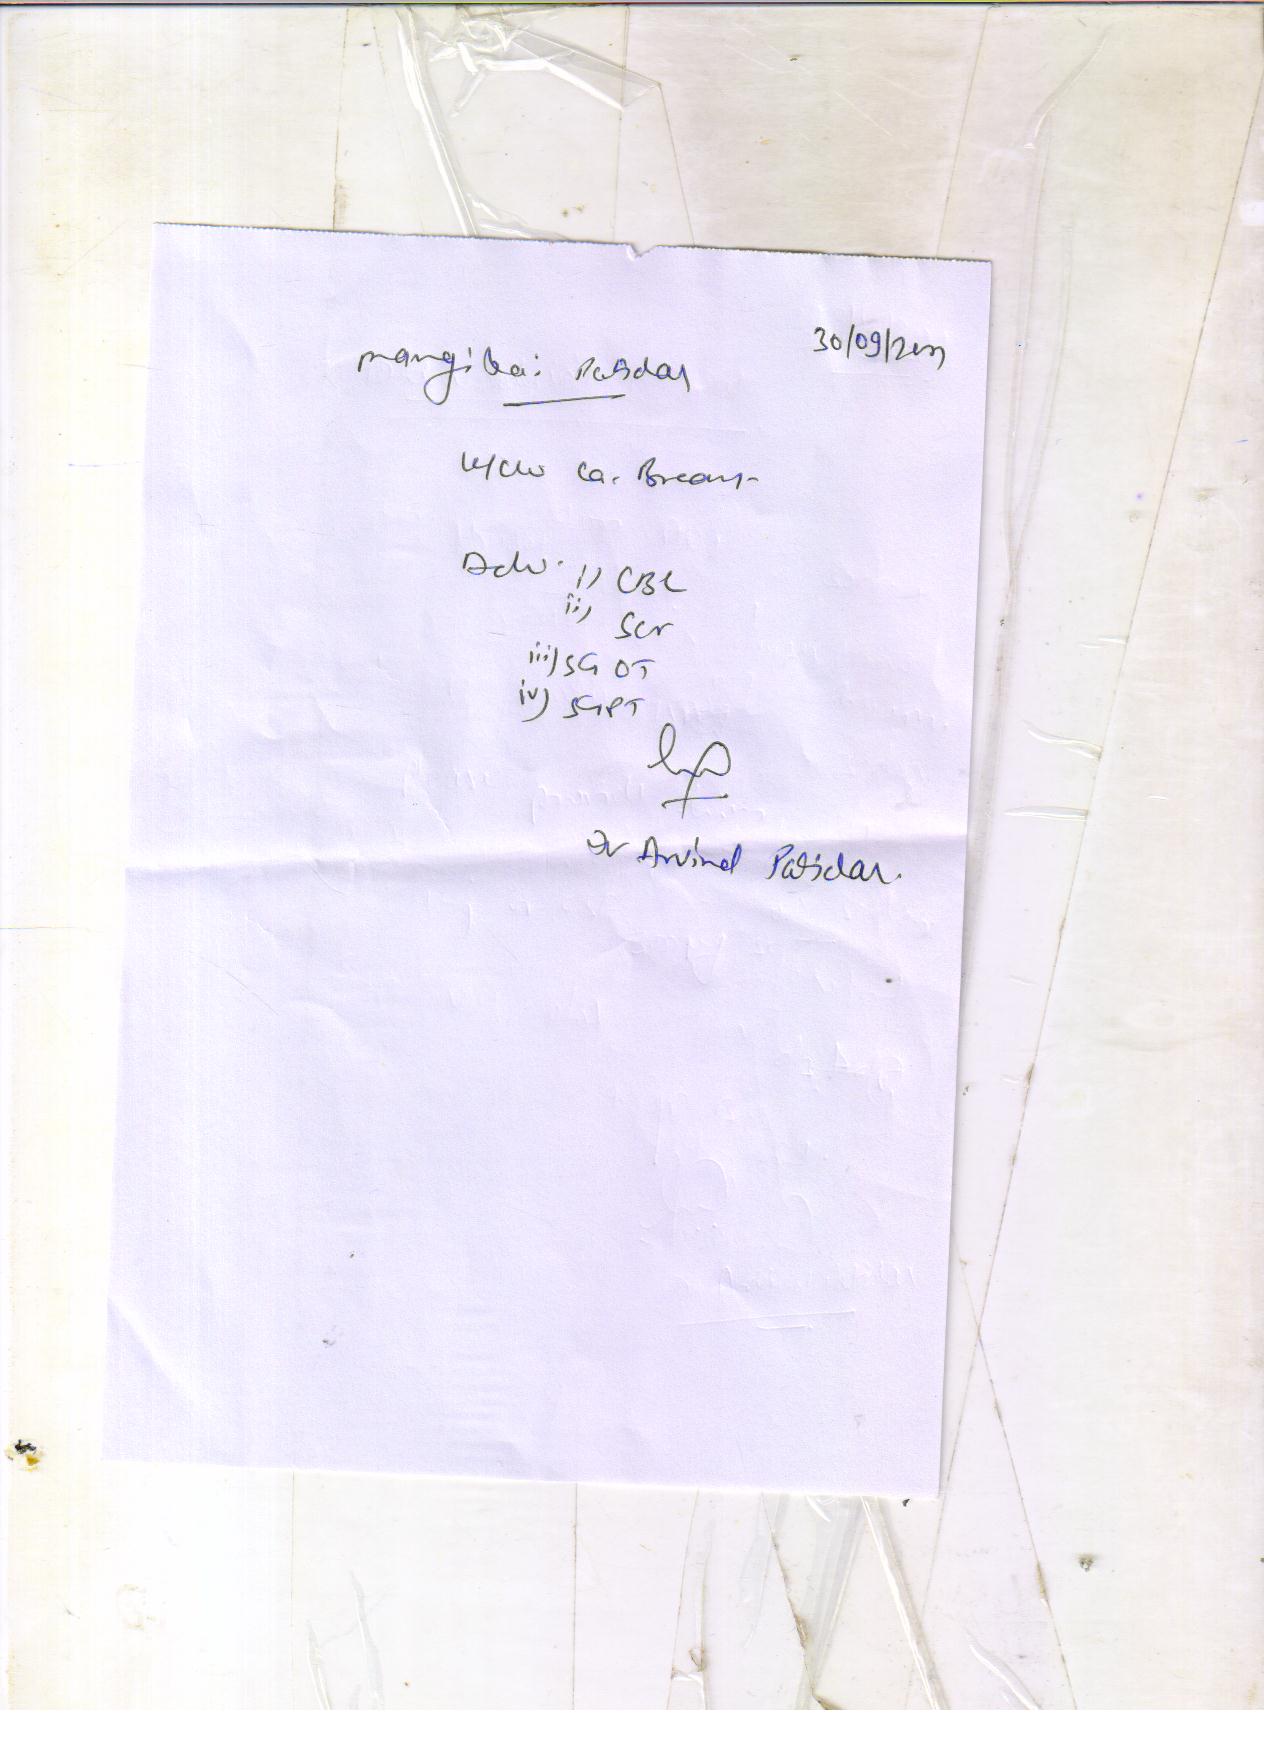 30/09/2022
Mangibai Patidar
K/C/O Ca. Breast
Adv. i) CBC
ii) SCr
iii) SGOT
iv) SGPT
Dr Arvind Patidar.